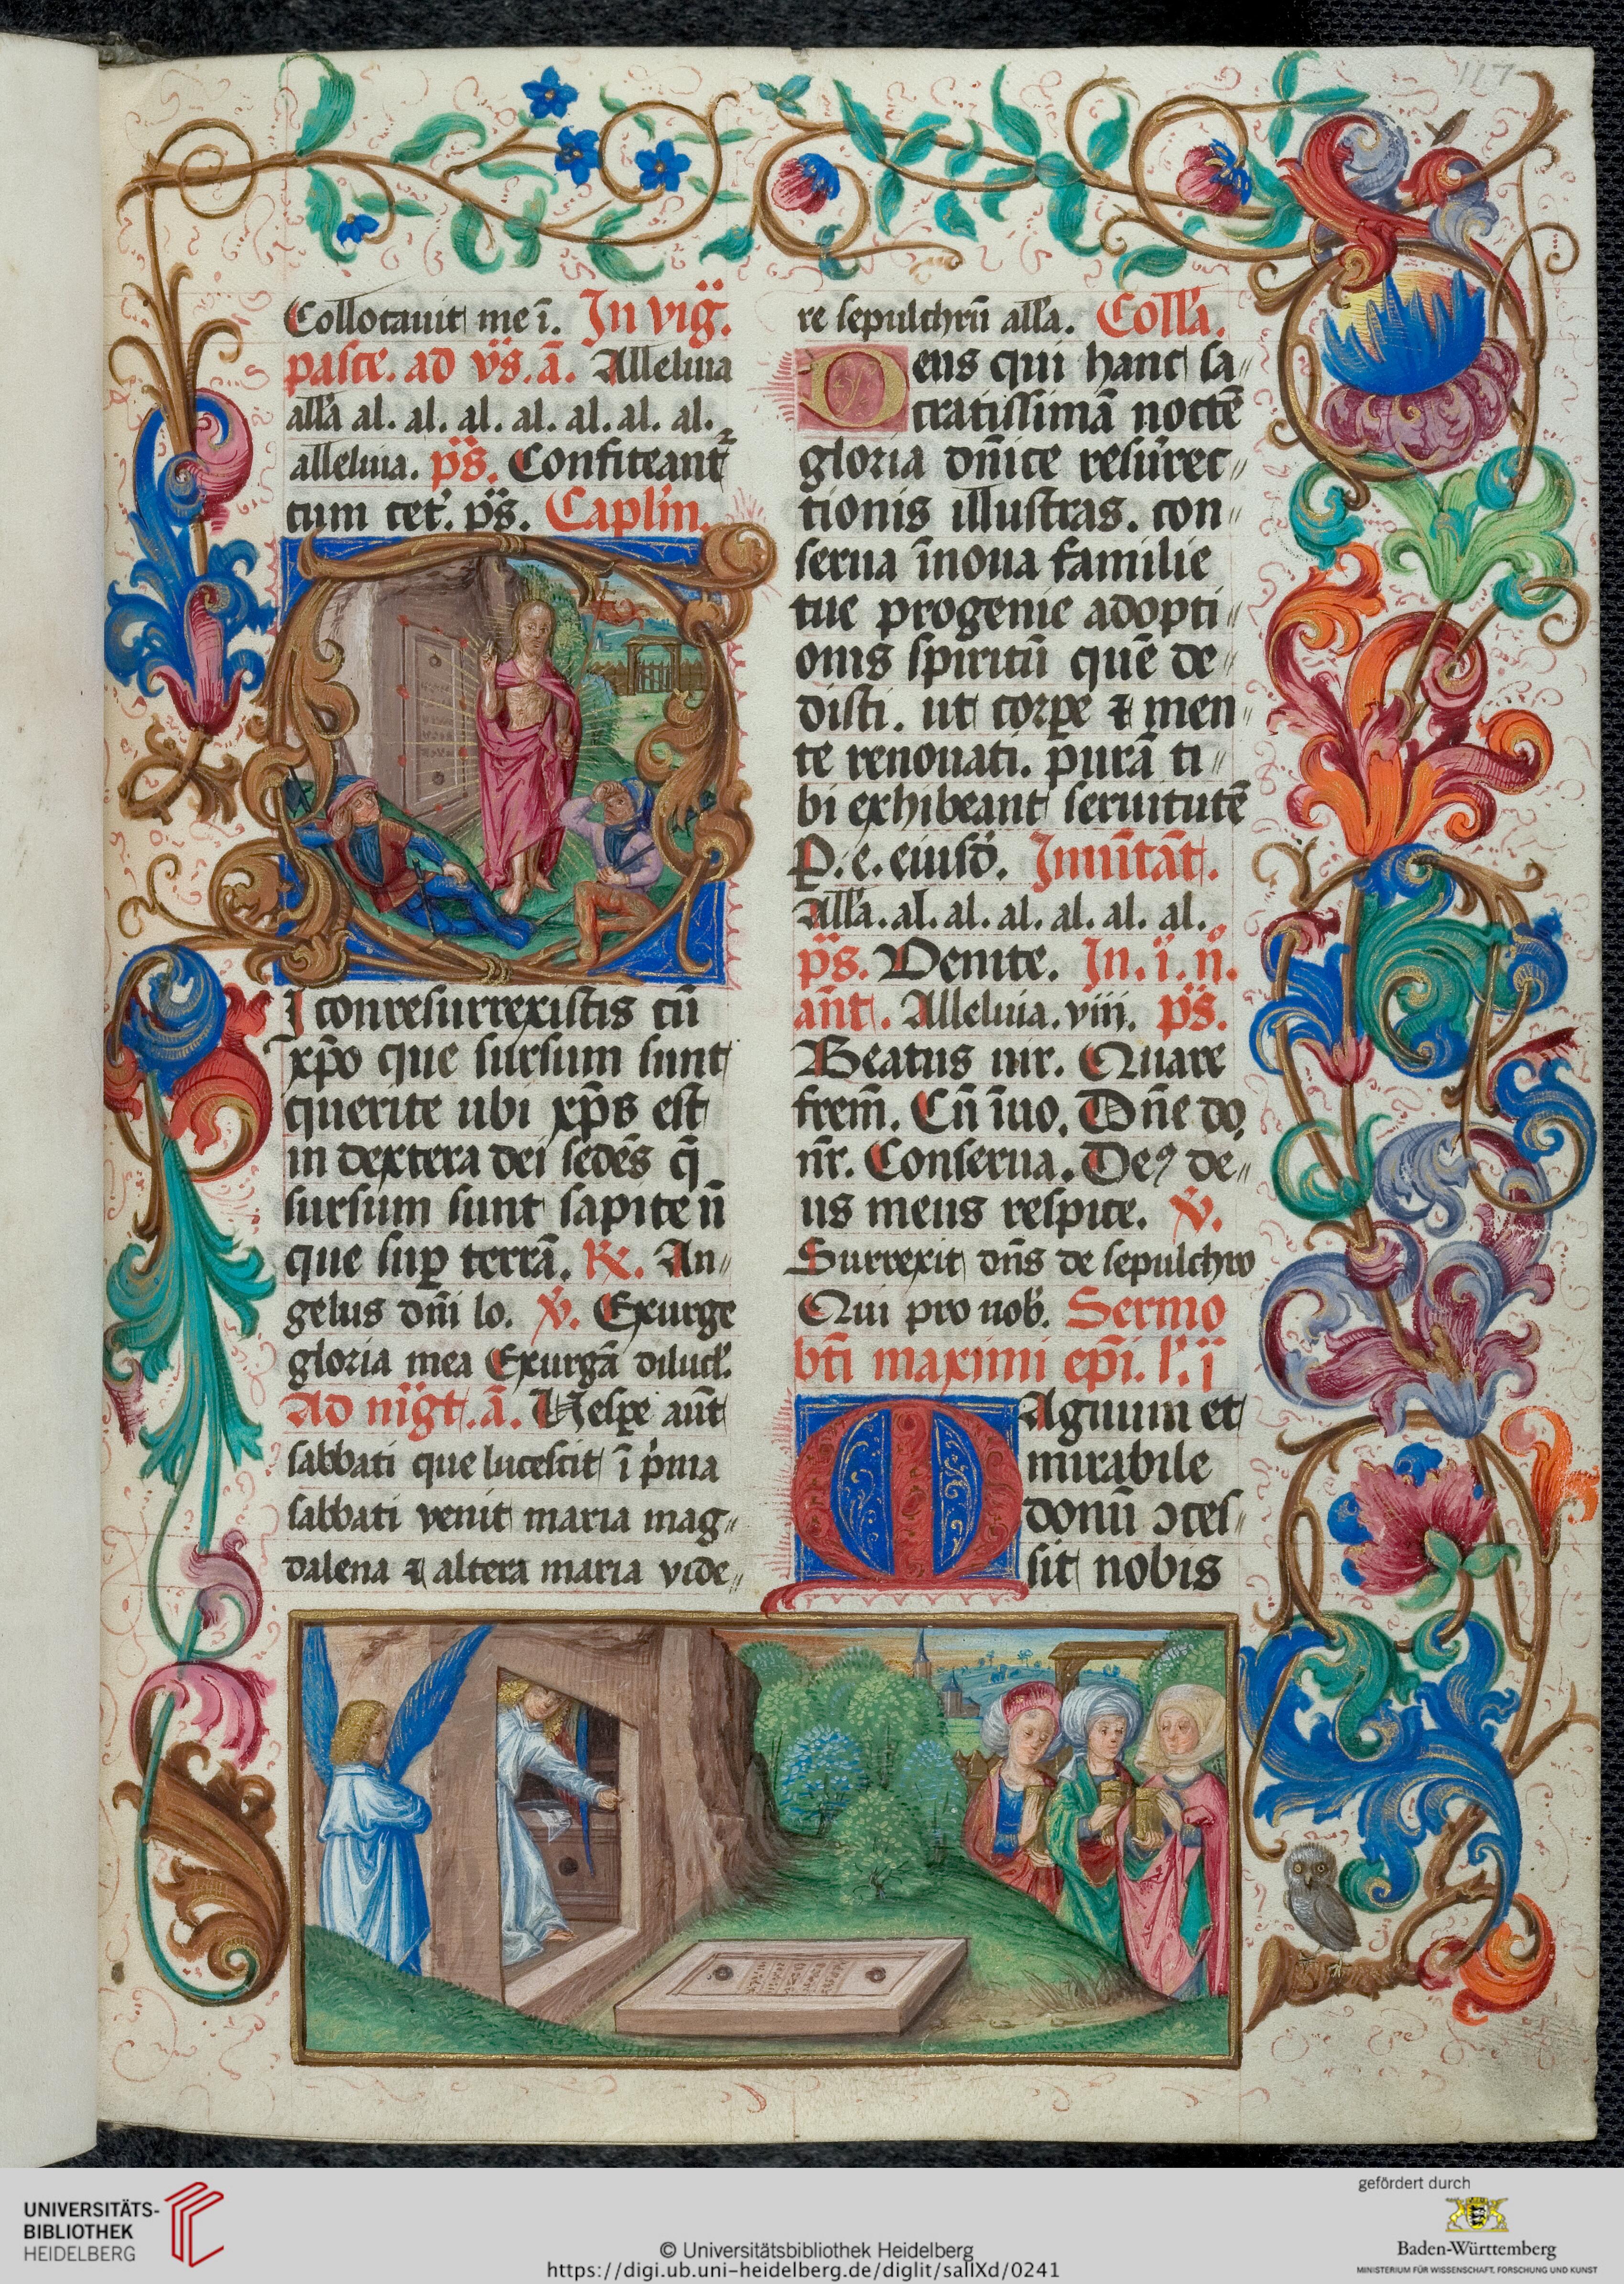 117
Collocauit me ī. In vig̈.
pasce. ad vs̈. ā. Alleluia
all'a al. al. al. al. al. al. al.
alleluia. ps̈. Confiteant᷑
cum cet'. ps̈. Caplm̄.
I conresurrexistis cū
xp̄o que sursum sunt
querite ubi xp̄s est
in dextera dei sedēs q̄
sursum sunt sapite n̄
que suꝑ terrā. R̸. An⸗
gelus dn̄i lo. v̸. Exurge
gloria mea Exurgā diluc̄l'.
Ad nig̈t. ā. Vesꝑe aūt
sabbati que lucescit ī p'ma
sabbati venit maria mag⸗
dalena ⁊ altera maria vide⸗
re sepulchrū all'a. Coll'a.
Deus qui hanc sa⸗
cratissimā noctē
gloria dn̄ice resurrec⸗
tionis illustras. con⸗
serua īnoua familie
tue progenie adopti⸗
onis spiritū quē de⸗
disti. ut corꝑe ⁊ men⸗
te renouati. purā ti⸗
bi exhibeant seruitutē
P. e. eiusd'. Inuītāt.
All'a. al. al. al. al. al. al.
ps̈. Venite. In. i. n°.
an̄t. Alleluia. viii. ps̈.
Beatus uir. Quare
frem̄. Cū īuo. Dn̄e do.
nr̄. Conserua. Deꝰ de⸗
us meus respice. v̸.
Surrexit dn̄s de sepulchro
Qui pro nob'. Sermo
bt̄i maximi ep̄i. l'. i
MAgnum et
mirabile
donū ɔces⸗
sit nobis
UNIVERSITÄTS-
BIBLIOTHEK
HEIDELBERG
© Universitätsbibliothek Heidelberg
https://digi.ub.uni-heidelberg.de/diglit/salIXd/0241
gefördert durch
Baden-Württemberg
MINISTERIUM FÜR WISSENSCHAFT, FORSCHUNG UND KUNST